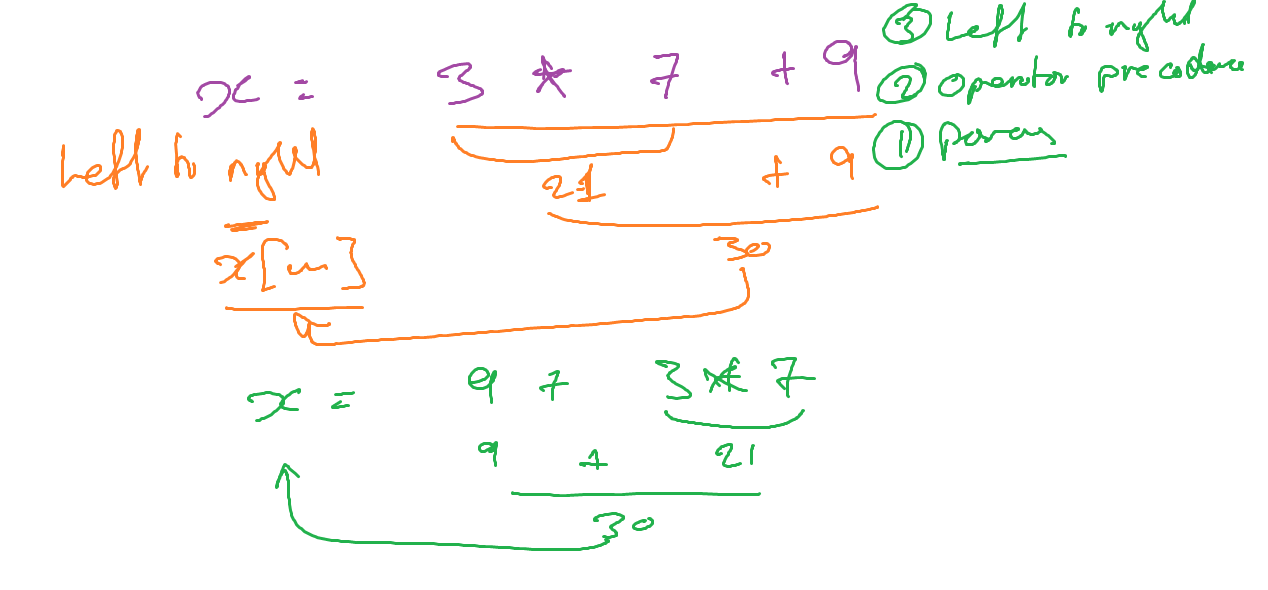 ③ Left to right
x = 3 * 7 + 9
② Operator precedence
① Parens
Left to right
21 + 9
30
x[ ]
x = 9 + 3 * 7
9 + 21
30